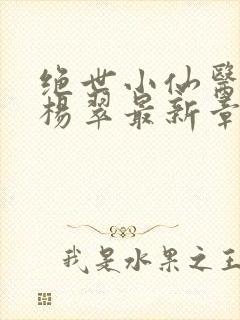 绝世小仙醫
楊翠最新章
我是水果之王